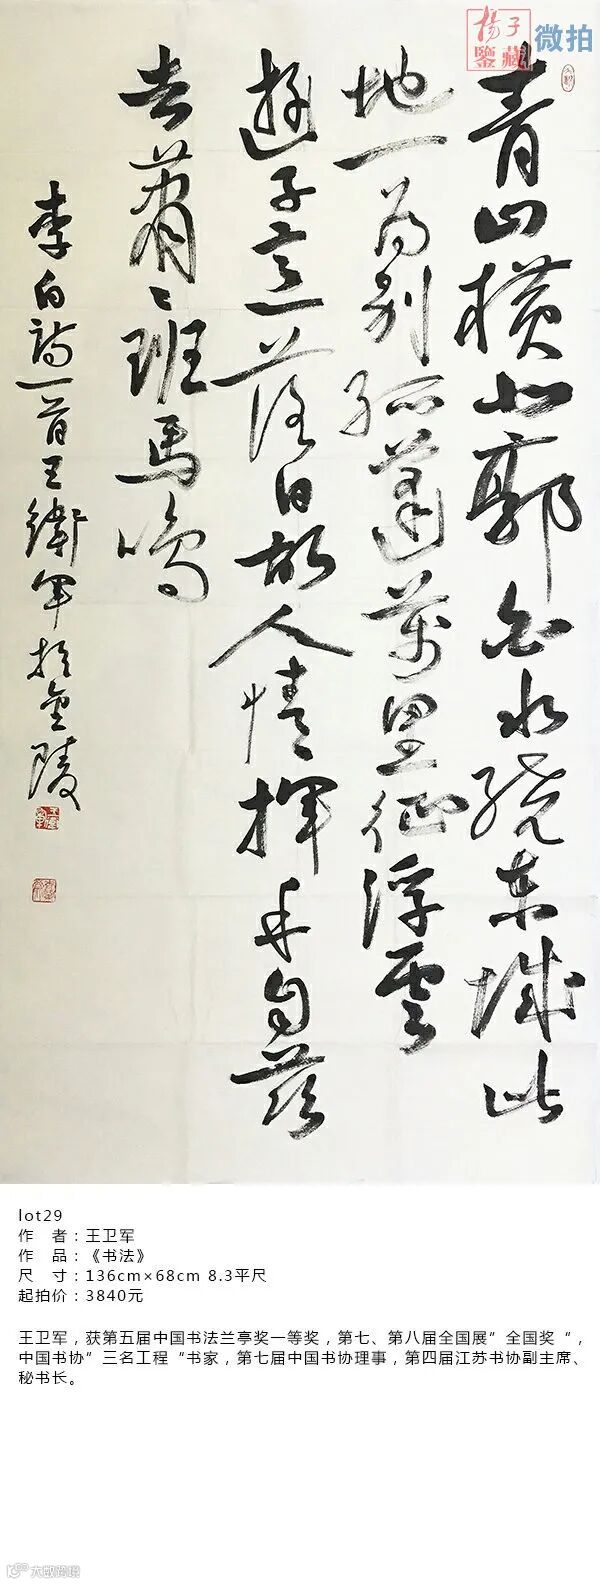 揚子
鑒藏
微拍
青山橫北郭白水繞東城此
地一為別孤蓬萬里征浮雲
遊子意落日故人情揮手自茲
去蕭〻班馬鳴
李白詩一首王衛軍於金陵
lot29
作 者：王卫军
作 品：《书法》
尺 寸：136cm×68cm 8.3平尺
起拍价：3840元
王卫军，获第五届中国书法兰亭奖一等奖，第七、第八届全国展”全国奖“，
中国书协”三名工程“书家，第七届中国书协理事，第四届江苏书协副主席、
秘书长。
大数跨境